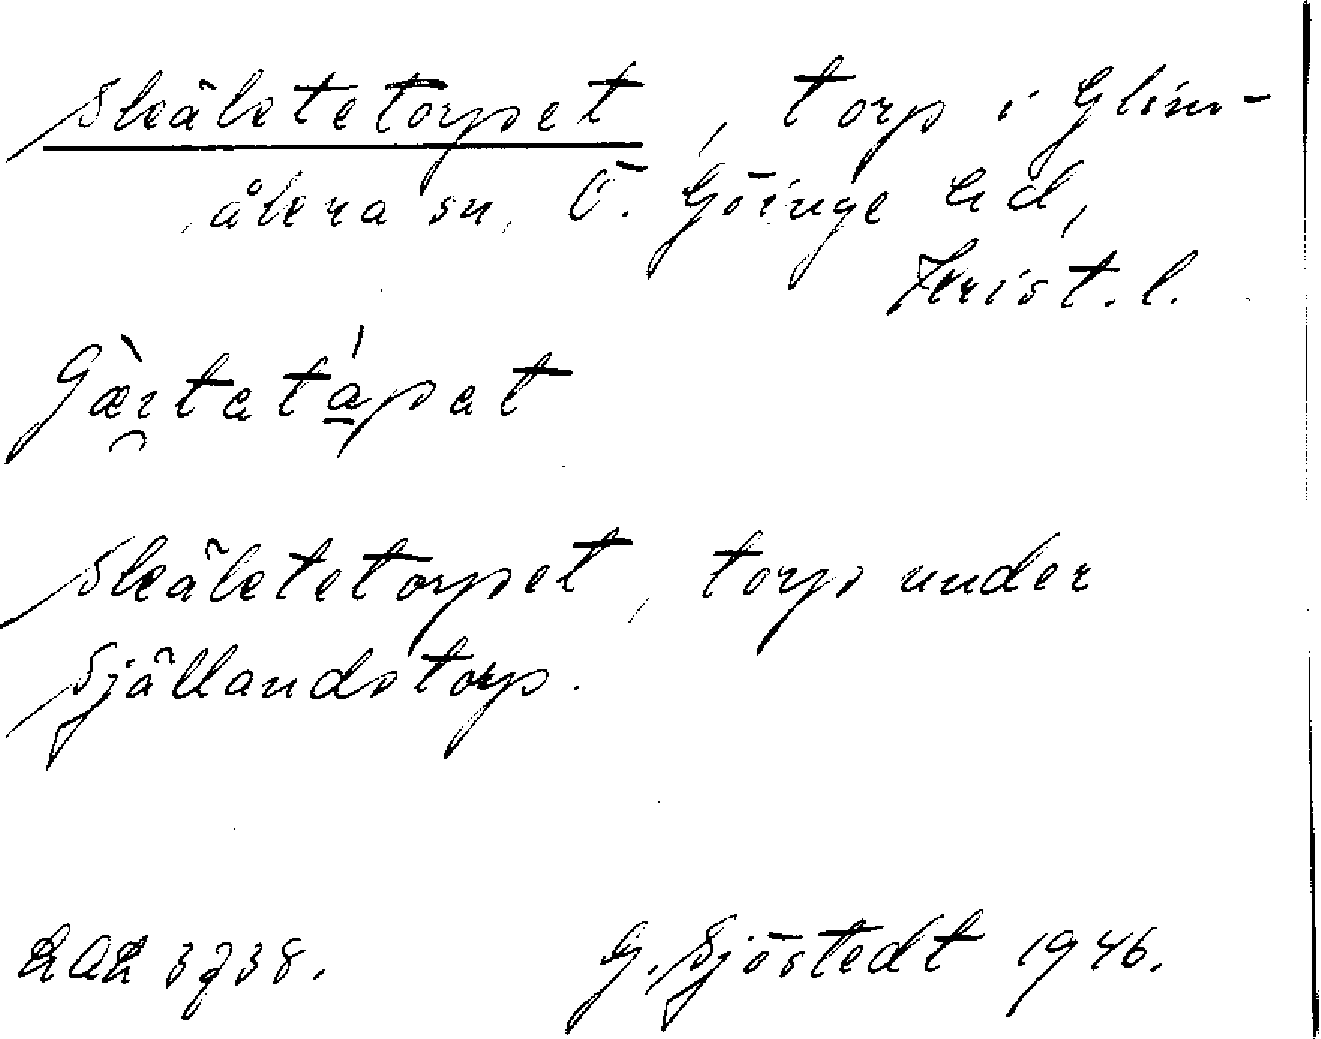 Skäletetorpet, torp i Glim-
åkra sn, Ö. Göinge hd,
Krist. l.
Skäletetorpet, torp under
Själlandstorp.
LAL 3738. G. Sjöstedt 1946.